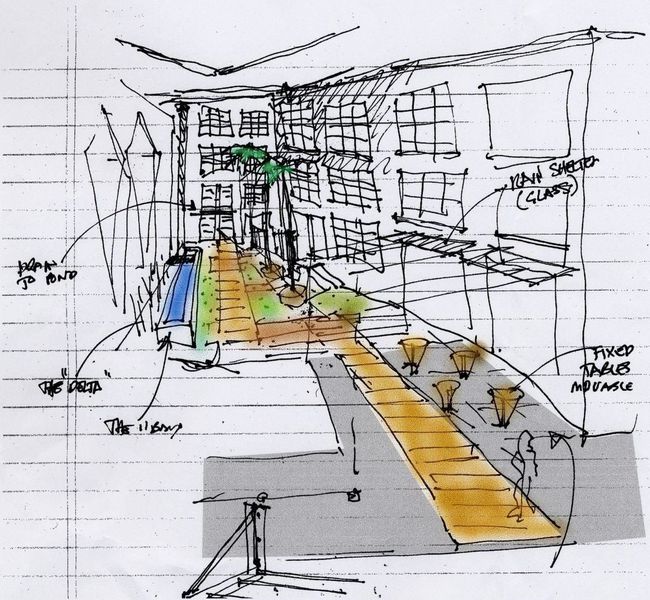 RAIN SHELTER
(GLASS)
DRAIN
TO POND
THE "DELTA"
THE
FIXED
TABLES
MOVABLE